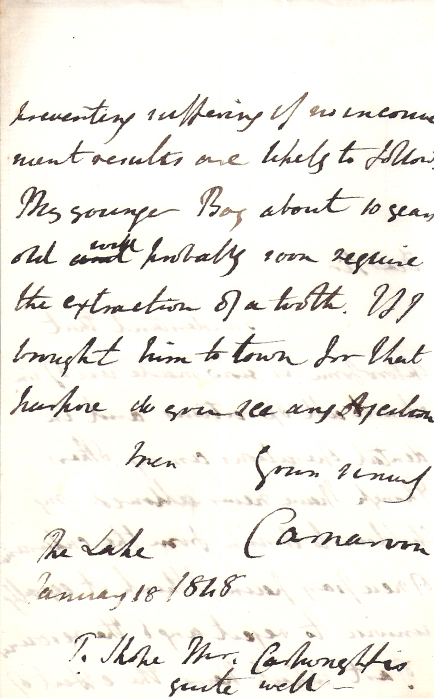 preventing suffering if no inconve
nient results are likely to follow.
My younger Boy about 10 years
old will probably soon require
the extraction of a tooth. If I
brought him to town for that
purpose do you see any objection
Yours
Carnarvon
The Lake
January 18 1848
Mr. Cartwright is
quite well -